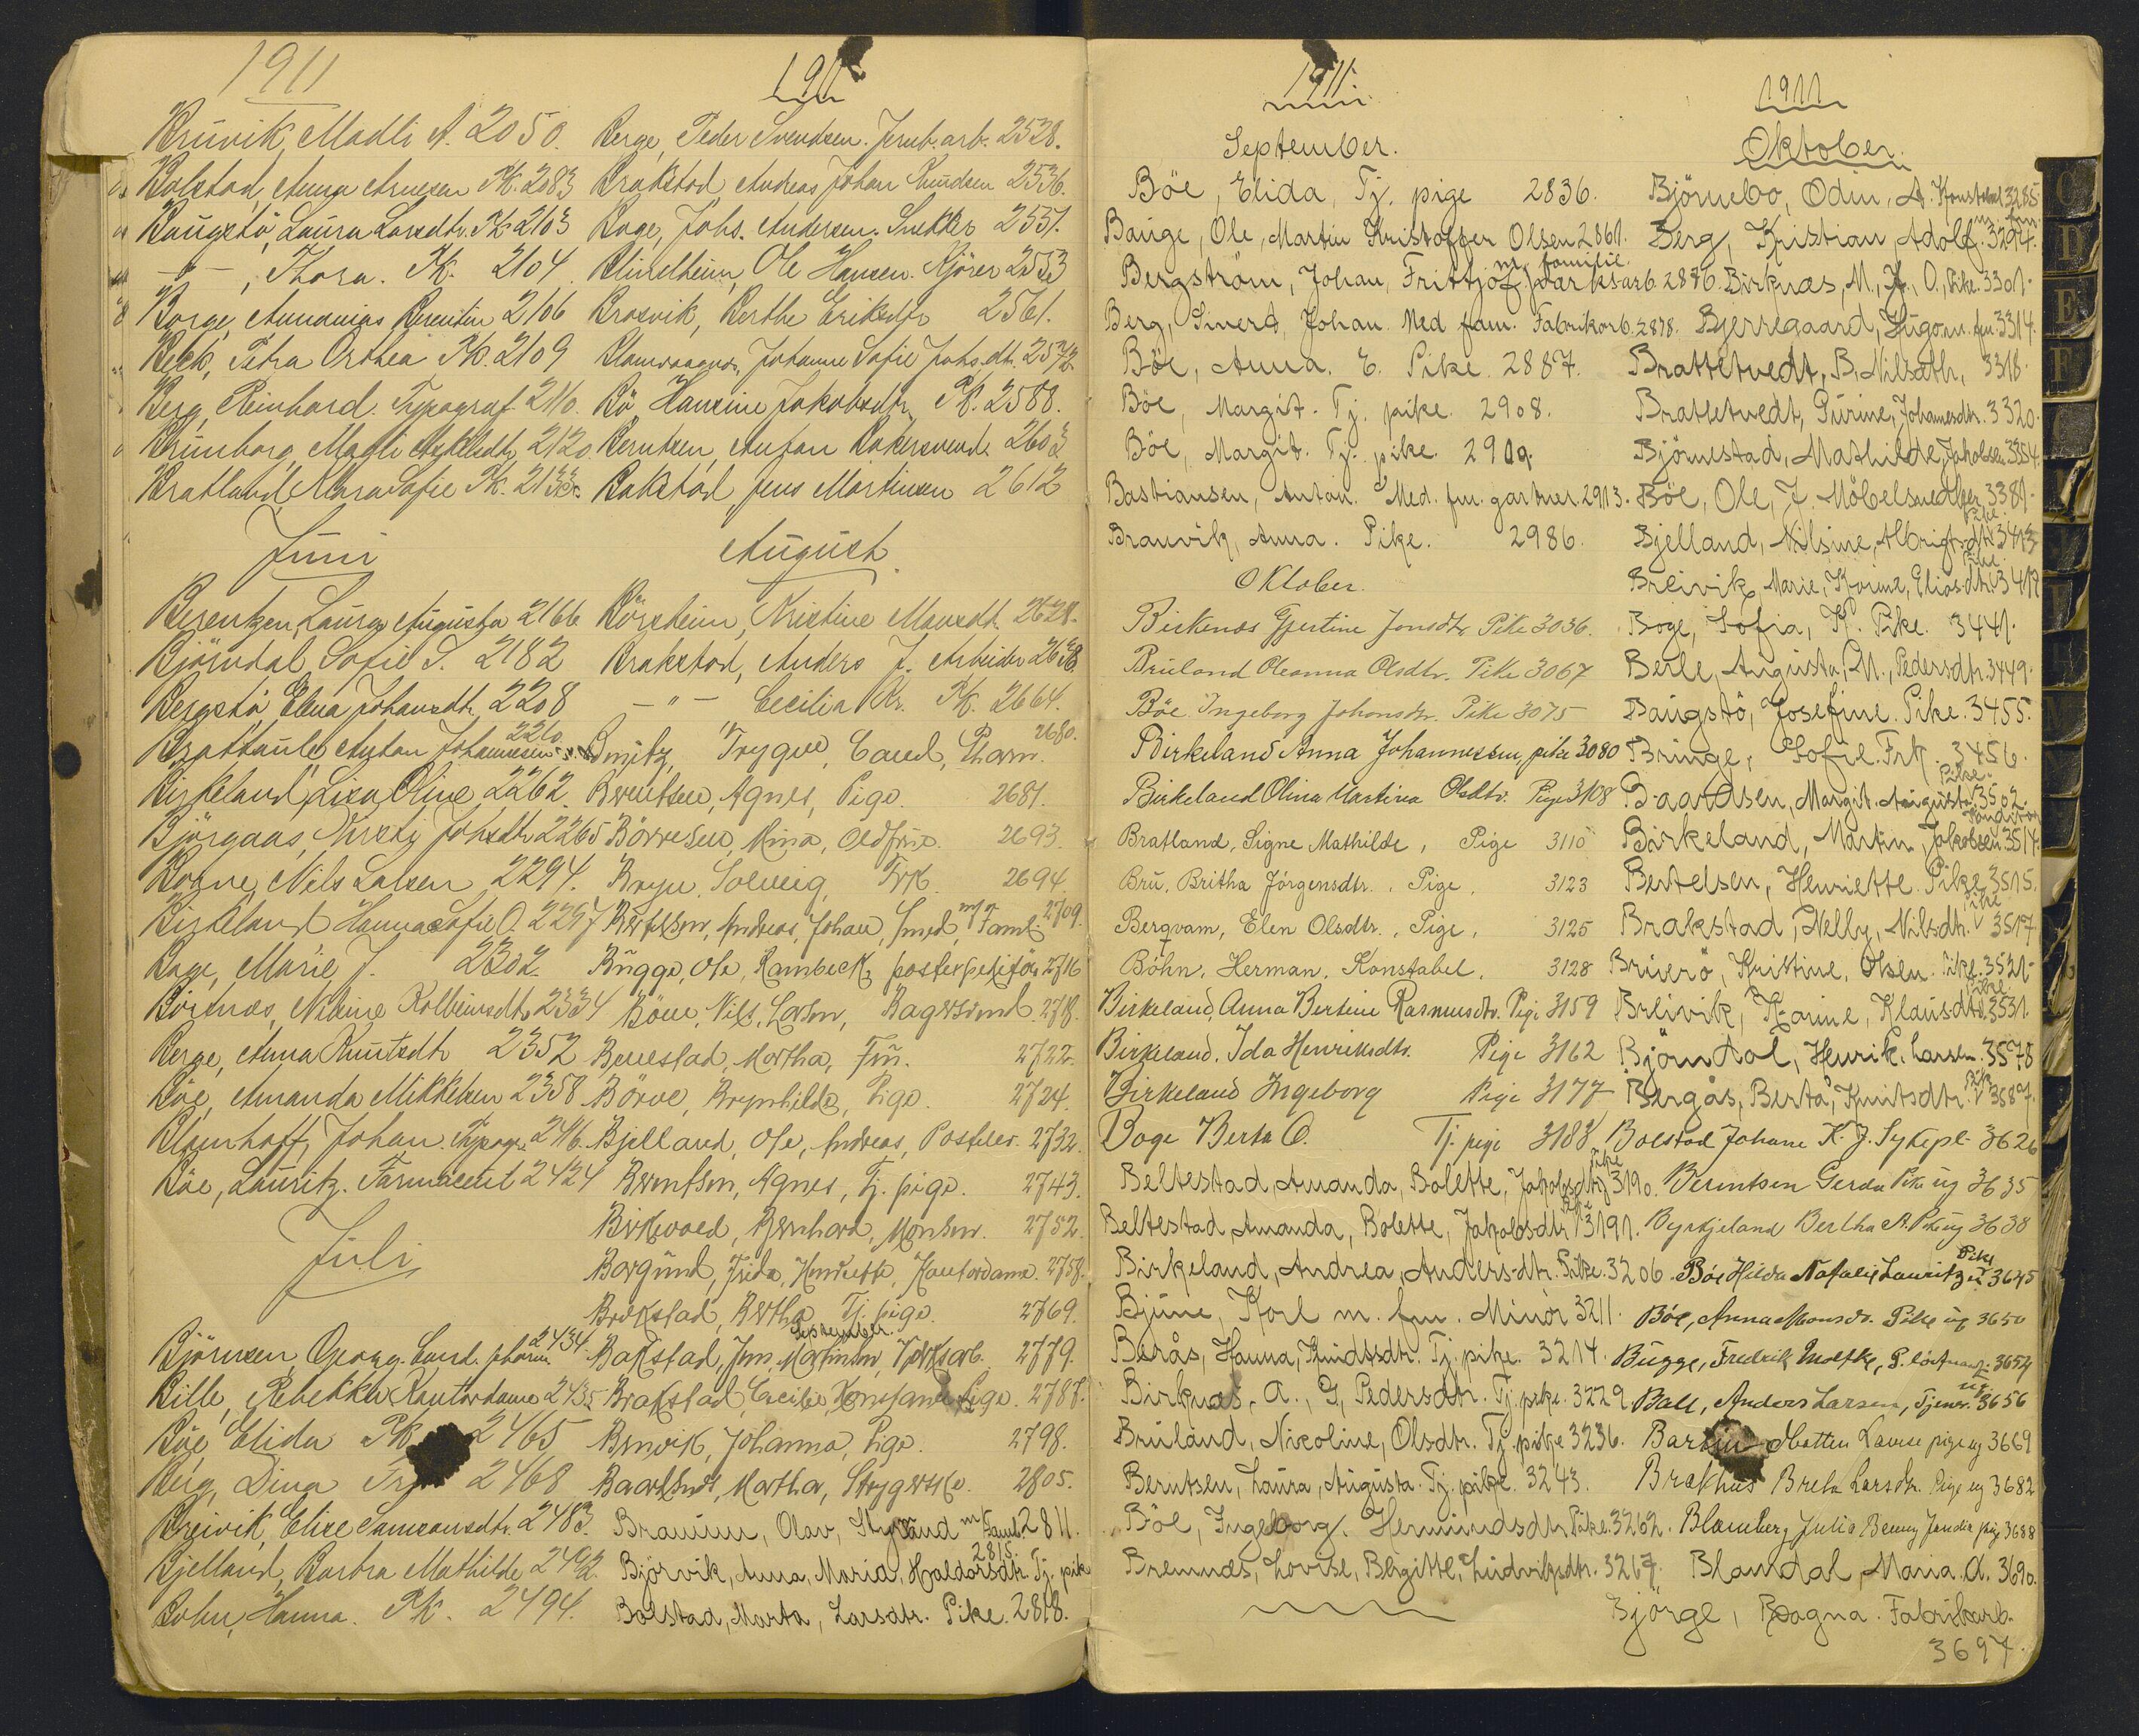 1911
Bruvik, Madli A. 2050.
Bolstad, Anna Arnesen Pk. 2083
Baugstø, Laura Larsdtr. Pk. 2103
— " —, Thora. Pk. 2104
Borge, Annanias Berentin 2106
Beck, Petra Orthea Pk. 2109
Berg, Reinhard. Typograf 2110.
Brunborg, Magli Askeldtr. 2120.
Bratland, Mara Sofie Pk. 2133.
Juni
Berentzen, Laura Augusta 2166
Björndal Sofie S. 2182
Bergstø, Elena Johansdtr. 2208
Brattaule, Anton Johannesen 2210.
Birkeland, Lisa Oline 2262.
Björgaas, Kirsti Johsdtr. 2265
Bogne, Nils Larsen 2294.
Birkeland Hanna Sofie O. 2297
Bage, Marie J. 2302
Böitnes, Nikine Kolbeinsdtr. 2334
Berge, Anna Knutsdtr. 2352
Böe, Amanda Mikkelsen 2358
Blomhoff, Johan. Typogr. 2416.
Böe, Lauritz. Farmaceut 2424
Juli
Björnsen Georg. Cand. pharm. 2434.
Bille, Rebekka Kontordame 2435
Böe Elida Pk. 2465
Berg, Dina 2468
Breivik, Elise Samsonsdtr. 2483.
Bjelland, Barbra Mathilde 2492.
Bohn, Hanna. Pk. 2494.
1911
Berge, Peder Svendsen. Jernb.arb. 2528.
Brakstad Andreas Johan Knudsen 2536.
Bage, Johs. Andersen. Snekker 2551.
Blindheim, Ole Hansen. Kjörer 2553
Brosvik, Berthe Eriksdtr. 2561.
Johanne Sofie Johs.dtr. 2572
Bö, Hansine Jakobsdtr. Pk. 2588.
Berntsen, Anton Bakersvend. 2603
Bakstad, Jens Martinsen 2612
August.
Börsheim, Kristine Monsdtr. 2628.
Brakstad, Anders J. Arbeider 2638
— " — Cecilia Kr. Pk. 2664.
Smitz, Trygve, Cand, Pharm. 2680.
Berentsen, Agnes, Pige. 2681.
Börresen, Mina, Oldfrue. 2693.
Bryn, Solveig, Frk. 2694.
Bertelsen, Andreas, Johan, Smed, m/Faml. 2709.
Bugge, Ole, Rambeck, postexpeditør 2716
Böen, Nils, Larsen, Bagersvend. 2718.
Benestad, Martha, Fru. 2722.
Börve, Brynhilda, Pige. 2724.
Bjelland, Ole, Andreas, Postelev. 2732.
Berentsen, Agnes, Tj. pige. 2743.
Birkvoed, Bernhard, Monsen. 2752.
Borgund, Frida, Henriette, Kontordame. 2758.
Brekstad, Bertha, Tj. pige. 2769.
September.
Bakstad, Jens, Martinsen, Værksarb. 2779.
Brakstad, Cecilie, Konstance Pige. 2787.
Brevik, Johanna, Pige. 2798.
Baardsen, Martha, Strygerske. 2805.
Braunn, Olav, Styrmand m/Faml. 2811.
Björvik, Anna, Maria, Haldorsdtr. Tj. pike 2815.
Bolstad, Marta, Larsdtr. Pike. 2818.
1911.
September.
Böe, Elida, Tj. pige 2836.
Bauge, Ole, Martin Kristoffer Olsen 2861.
Bergström, Johan, Frittjof m. familie. Værksarb. 2876.
Berg, Sinerd, Johan. Med fam. Fabrikarb. 2878.
Böe, Anna. E. Pike. 2887.
Böe, Margit. Tj. pike. 2908.
Böe, Margit. Tj. pike. 2909.
Bastiansen, Antan. Med. fm. gartner. 2913.
Branvik, Anna. Pike. 2986.
Oktober.
Birkenes Gjertine Jonsdtr. Pike 3036.
Bruland Oleanna Olsdtr. Pike 3067
Böe Ingeborg Johansdtr. Pike 3075
Birkeland Anna Johannessen, pike 3080
Birkeland Olina Martina Olsdtr. Pige 3108
Bratland, Signe Mathilde, Pige 3110
Bru, Britha Jörgensdtr., Pige, 3123
Bergvam, Elen Olsdtr., Pige, 3125
Böhn, Herman, Konstabel, 3128
Birkeland, Anna Bertine Rasmusdtr. Pige 3159
Birkeland, Ida Henriksdtr. Pige 3162
Birkeland Ingeborg Pige 3177
Boge Berta O. Tj. pige 3188
Beltestad, Amanda, Bolette, Jakobsdtr. Pike 3190.
Beltestad, Amanda, Bolette, Jakobsdtr. Pike 3191.
Birkeland, Andrea, Anders-dtr. Pike. 3206.
Bjune, Karl m. fm. Minör 3211.
Berås, Hanna, Knudtsdtr. Tj. pike. 3214.
Birknes, A., G, Pedersdtr. Tj. pike. 3229
Bruland, Nicoline, Olsdtr. Tj. pike 3236.
Berntsen, Laura, Augusta. Tj. pike. 3243.
Böe, Ingeborg. Hermundsdtr. Pike. 3262.
Bremnes, Lovise, Birgitte, Ludviksdtr. 3267.
1911
Oktober.
Björnebo, Odin, A. Konstabel 3285
Berg, Kristian Adolf. m. fam. 3294.
Birknes, M., J., O., Pike. 3301.
Bjerregaard, Hugo m. fm 3314.
Brattetvedt, B. Nilsdtr, 3318.
Brattetvedt, Gurine, Johannesdtr. 3320.
Björnestad, Mathilde, Jakobsen 3354.
Böe, Ole, J. Möbelsnedker 3381.
Bjelland, Nilsine, Albrigtsdtr. Pike. 3413
Breivik, Marie, Korine, Eliasdtr. Pike. 3417
Boge, Sofia, K. Pike. 3441.
Berle, Augusta, M., Pedersdtr. 3449.
Baugstö, Josefine. Pike. 3455.
Bringe, Sofie. Frk. 3456.
Baardsen, Margit. Augusta Pike. 3502.
Birkeland, Martin, Jakobsen. Konditor 3514.
Bertelsen, Henriette. Pike 3515.
Brakstad, Nelly, Nilsdtr. Pike 3517
Bruerö, Kristine, Olsen. Pike. 3521.
Breivik, Karine, Klausdtr. Pike. 3531.
Björndal, Henrik. Larsen. 3578
Bergås, Berta, Knutsdtr. Pike 3587.
Bolstad Johane K. J. Sykepl. 3626
Berentsen Gerda Pike ug 3635
Byrkjeland Bertha A. Pike ug 3638
Böe Hilda Natalie Lauritz Pike u 3645
Böe, Anna Monsdr. Pike ug 3650
Bugge, Fredrik Moltke, P. löitnant 3654
Ball, Anders Larsen, Tjener. ug 3656
Metten Lovise pige ug 3669
Brakhus Breta Larsdtr. Pige ug 3682
Blomberg Julie Benny Jandia pig 3688
Blomdal, Maria. A. 3690.
Bjørge, Ragna. Fabrikarb.
3697.
C
D
E
F